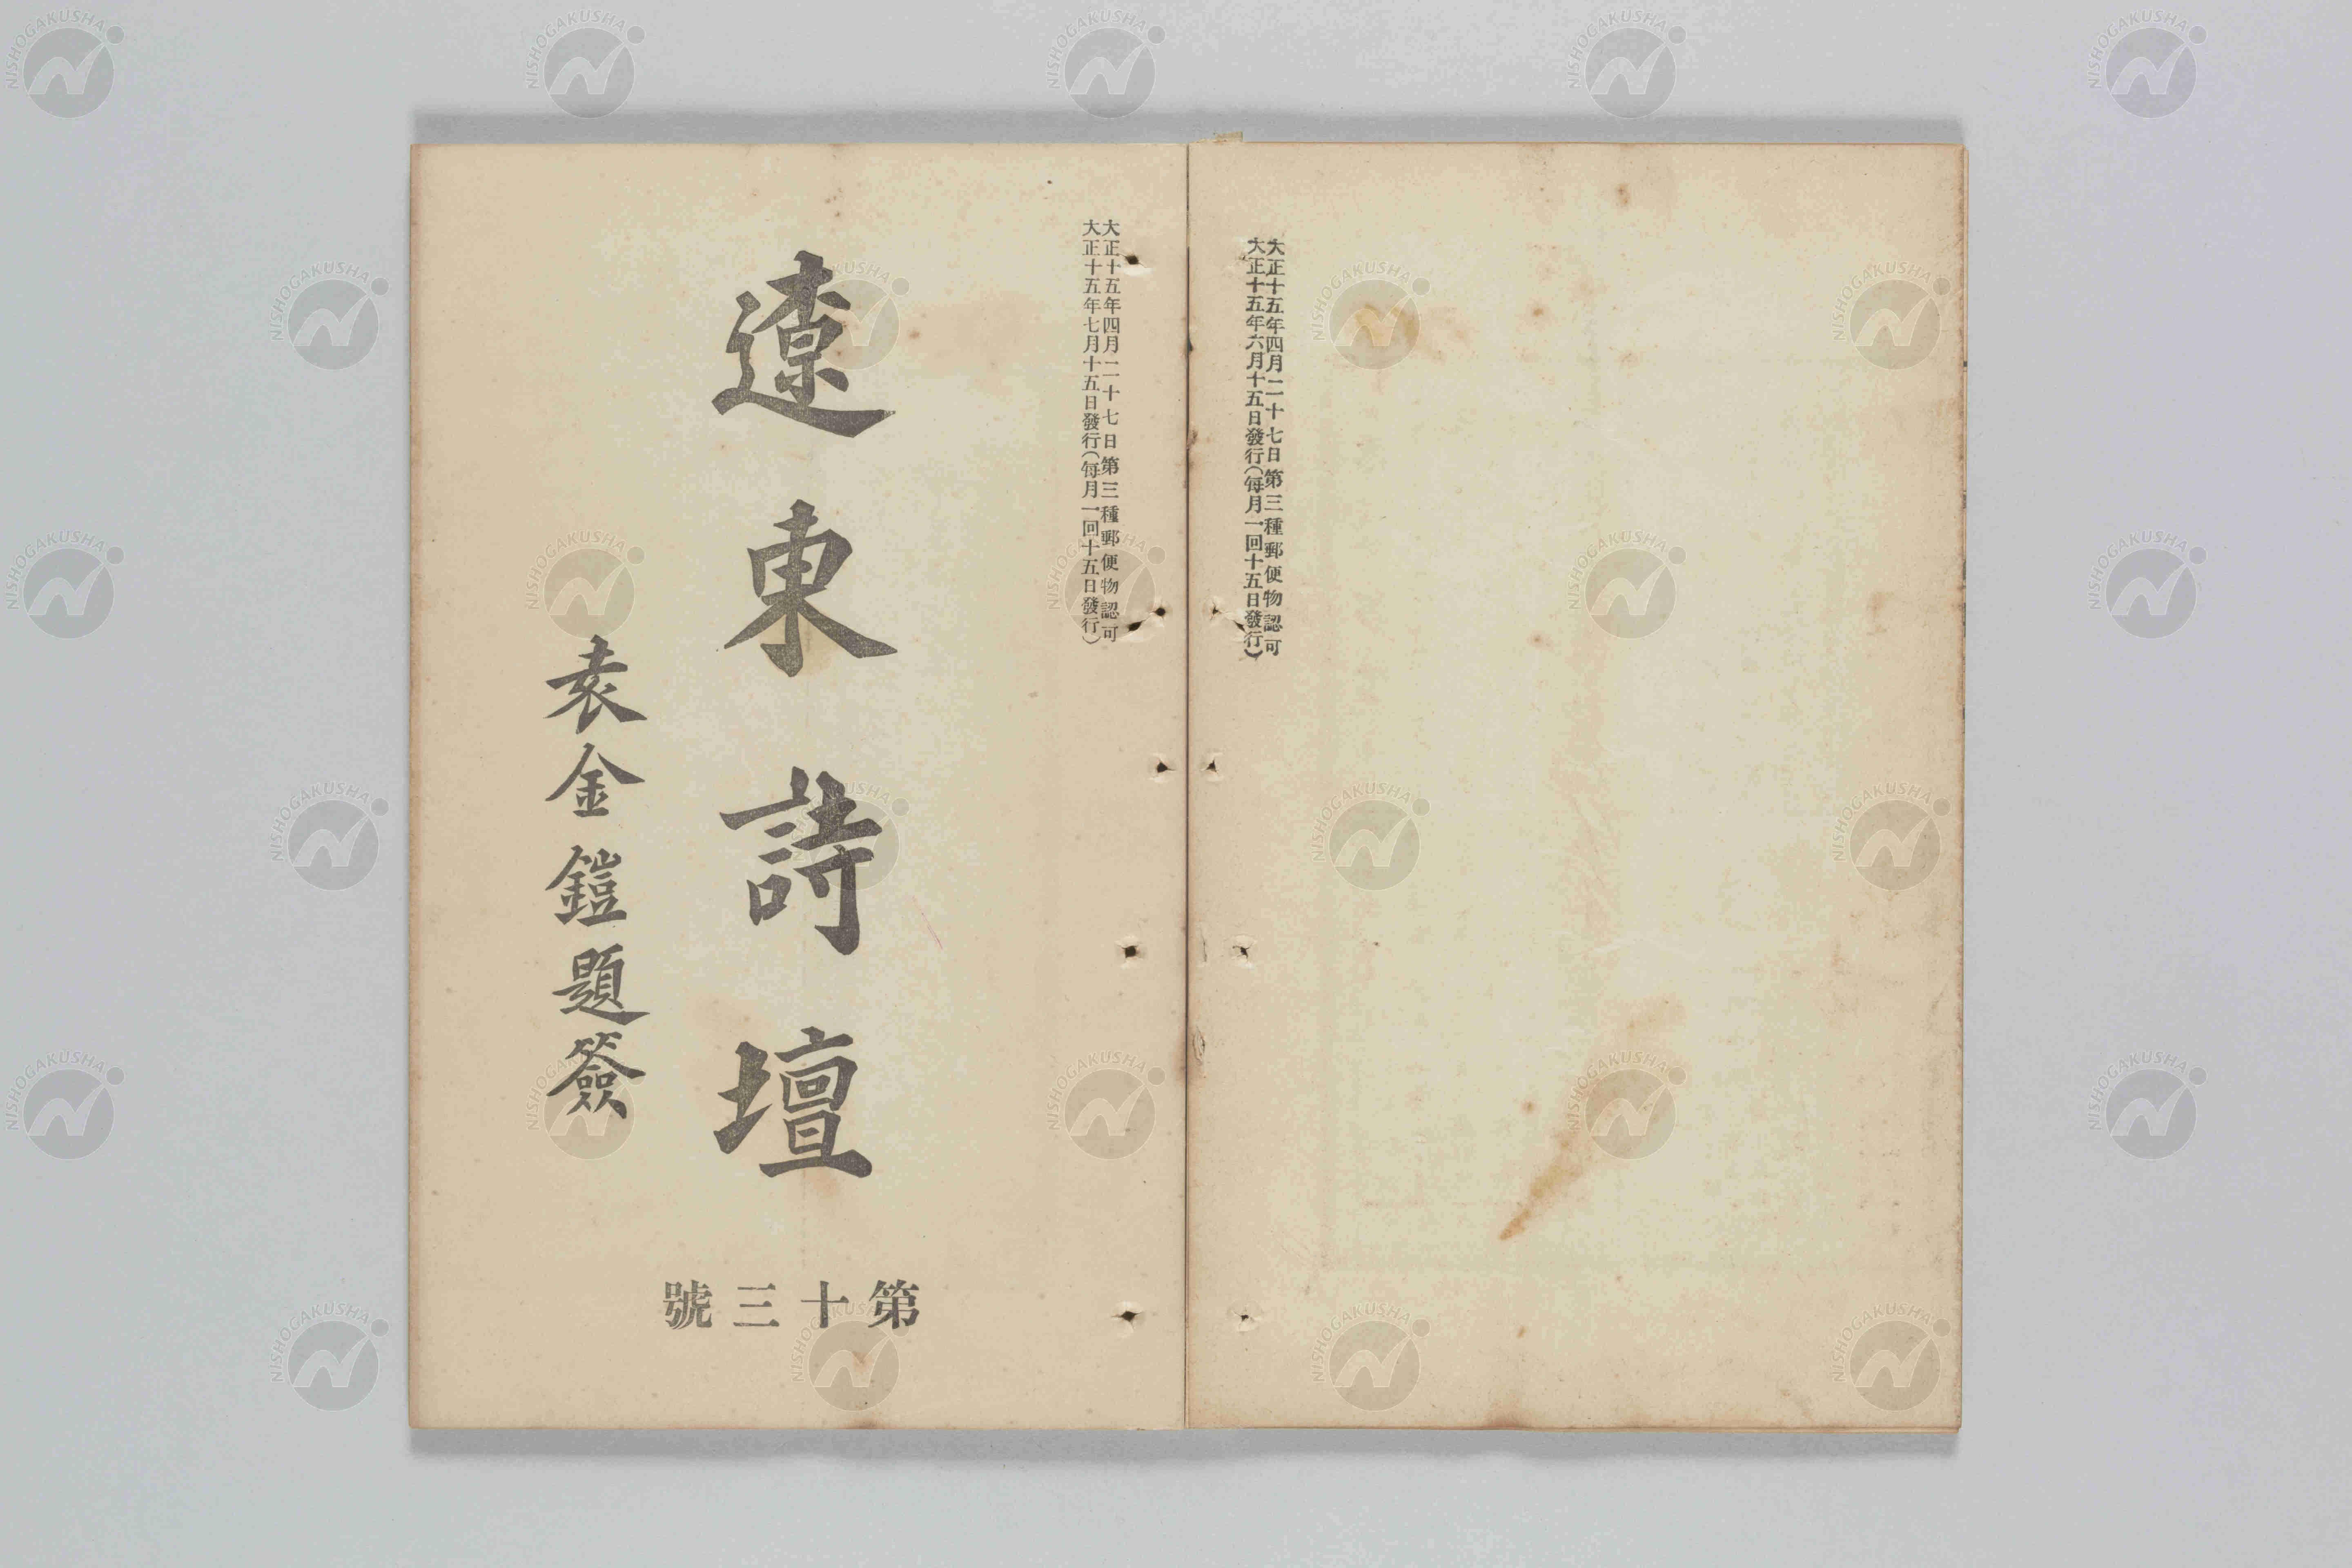 大正十五年四月二十七日第三種郵便物認可
大正十五年六月十五日發行(每月一回十五日發行)
大正十五年四月二十七日第三種郵便物認可
大正十五年七月十五日發行(每月一回十五日發行)
遼東詩壇
袁金鎧題簽
第十三號
NISHOGAKUSHA